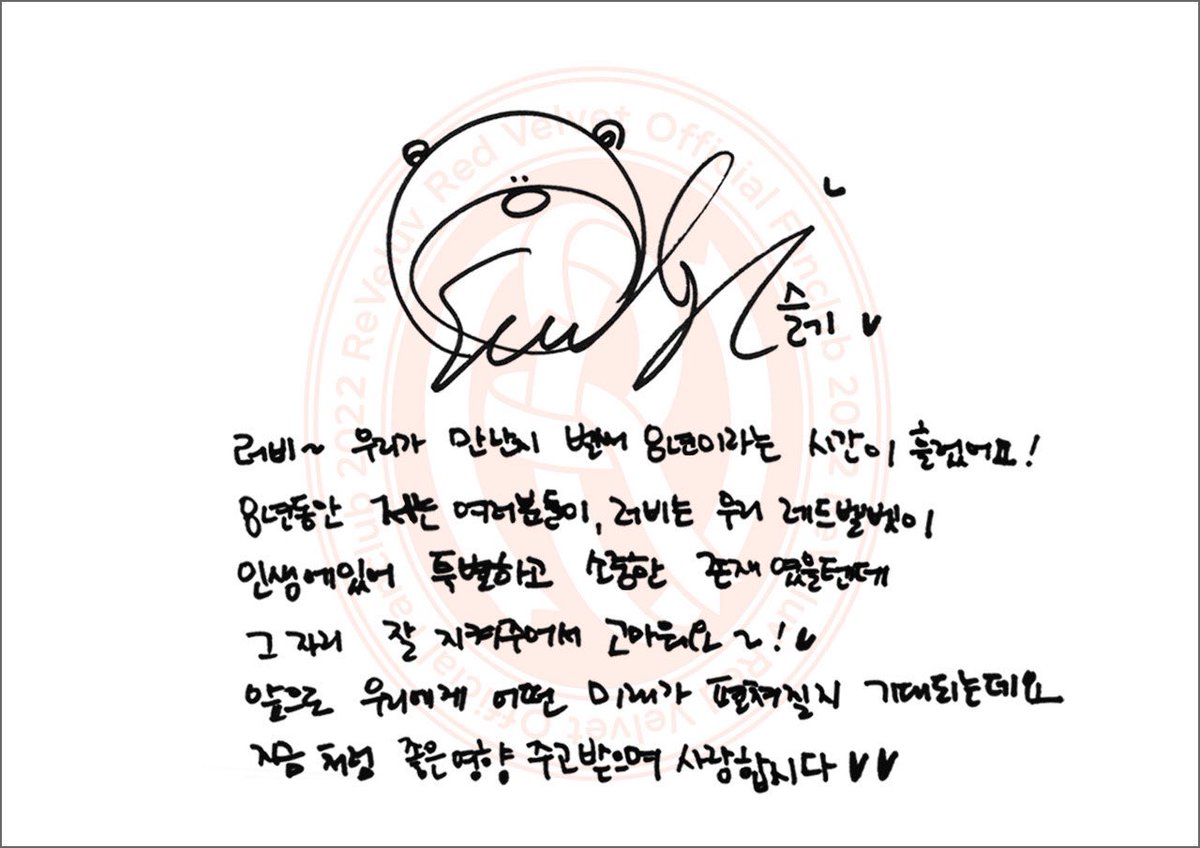 슬기 ♥
러비~ 우리가 만난지 벌써 8년이라는 시간이 흘렀어요!
8년동안 저는 여러분들이, 러비는 우리 레드벨벳이
인생에있어 특별하고 소중한 존재였을텐데
그 자리 잘 지켜주어서 고마워요~!♥
앞으로 우리에게 어떤 미래가 펼쳐질지 기대되는데요
지금처럼 좋은영향 주고받으며 사랑합시다♥♥
2022 ReVeluv Red Velvet Official Fanclub 2022 ReVeluv Red Velvet Official Fanclub